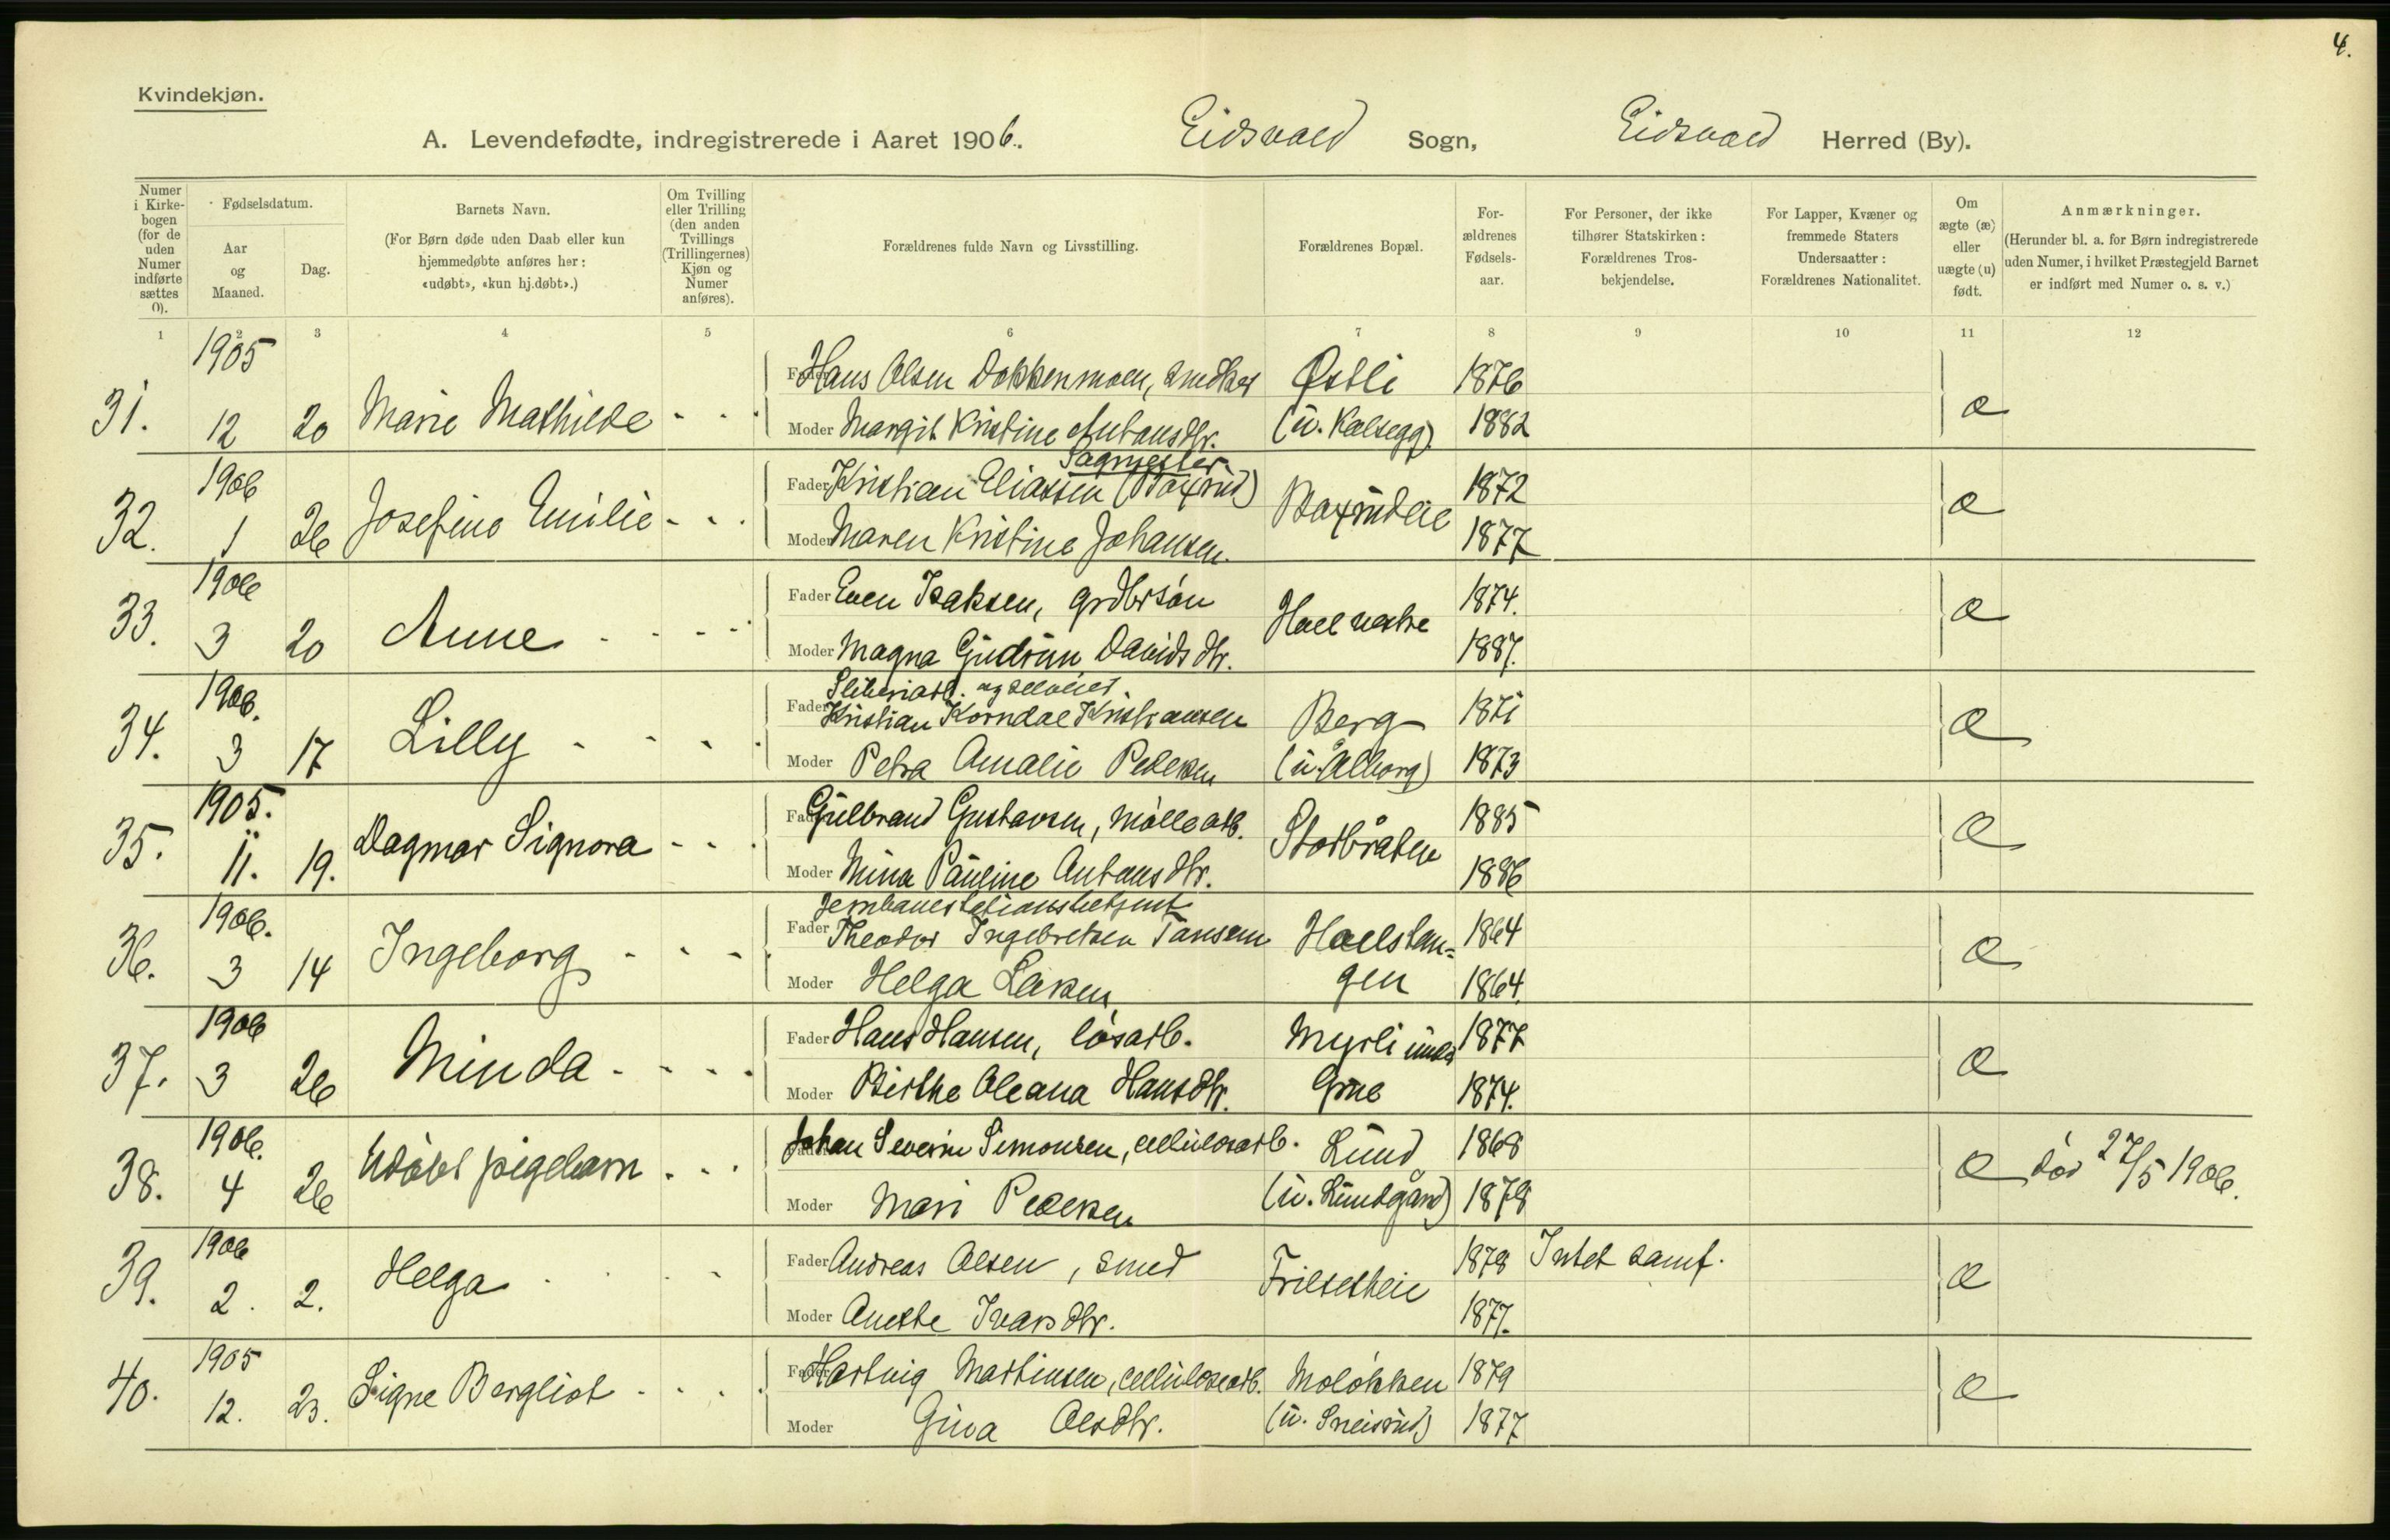 4.
Kvindekjøn.
A. Levendefødte, indregistrerede i Aaret 1906. Eidsvold Sogn, Eidsvold Herred (By).
Numer i Kirkebogen (for de uden Numer indførte sættes 0).
Fødselsdatum.
Aar og Maaned.
Dag.
Barnets Navn.
(For Børn døde uden Daab eller kun hjemmedøbte anføres her: «udøbt», «kun hj.døbt».)
Om Tvilling eller Trilling (den anden Tvillings (Trillingernes) Kjøn og Numer anføres).
Forældrenes fulde Navn og Livsstilling.
Forældrenes Bopæl.
Forældrenes Fødselsaar.
For Personer, der ikke tilhører Statskirken: Forældrenes Trosbekjendelse.
For Lapper, Kvæner og fremmede Staters Undersaatter: Forældrenes Nationalitet.
Om ægte (æ) eller uægte (u) født.
Anmærkninger.
(Herunder bl. a. for Børn indregistrerede uden Numer, i hvilket Præstegjeld Barnet er indført med Numer o. s. v.)
1 2 3 4 5 6 7 8 9 10 11 12
1905
Fader Hans Olsen Dokkenmoen, snedker Østli 1876
31. 12 20 Marie Mathilde æ
Moder Margit Kristine Antonsdtr. (u. Kolsegg) 1882
1906 Sagmester
Fader Kristian Eliassen (Boxrud) 1872
32. 1 26 Josefine Emilie Boxrudeie æ
Moder Maren Kristine Johansen. 1877
1906
Fader Even Isaksen, grdbrsøn 1874.
33. 3 20 Anne Hoel vestre æ
Moder Magna Gudrun Davidsdtr. 1887.
1906. Sliberiarb. og selveier.
Fader Kristian Korndal Kristiansen Berg 1871
34. 3 17 Lilly æ
Moder Petra Amalie Pedersen (u. Ålborg) 1873
1905.
Fader Gulbrand Gustavsen, møllearb. 1885
35. 11. 19. Dagmar Signora Storbråten æ
Moder Mina Pauline Antonsdtr. 1886
1906. Jernbanestationsbetjent
Fader Theodor Ingebretsen Tansem Hoelstan= 1864
36. 3 14 Ingeborg æ
Moder Helga Larsen gen 1864.
1906
Fader Hans Hansen, løsarb. Myrli under 1877
37. 3 26 Minda æ
Moder Birthe Oleana Hansdtr. Grue 1874.
1906.
Fader Johan Severin Simonsen, cellulosarb. Lund 1868
38. 4 26 Udøbt pigebarn æ død 27/5 1906.
Moder Mari Pedersen (u. Lundgård) 1878
1906
Fader Andreas Olsen, smed 1878 Intet samf.
39. 2. 2. Helga Frilsetheie æ
Moder Anethe Ivarsdtr. 1877.
1905
Fader Hartvig Martinsen, cellulosearb. Moløkken 1879
40. 12. 23. Signe Bergliot æ
Moder Gina Olsdtr. (u. Sneisrud) 1877